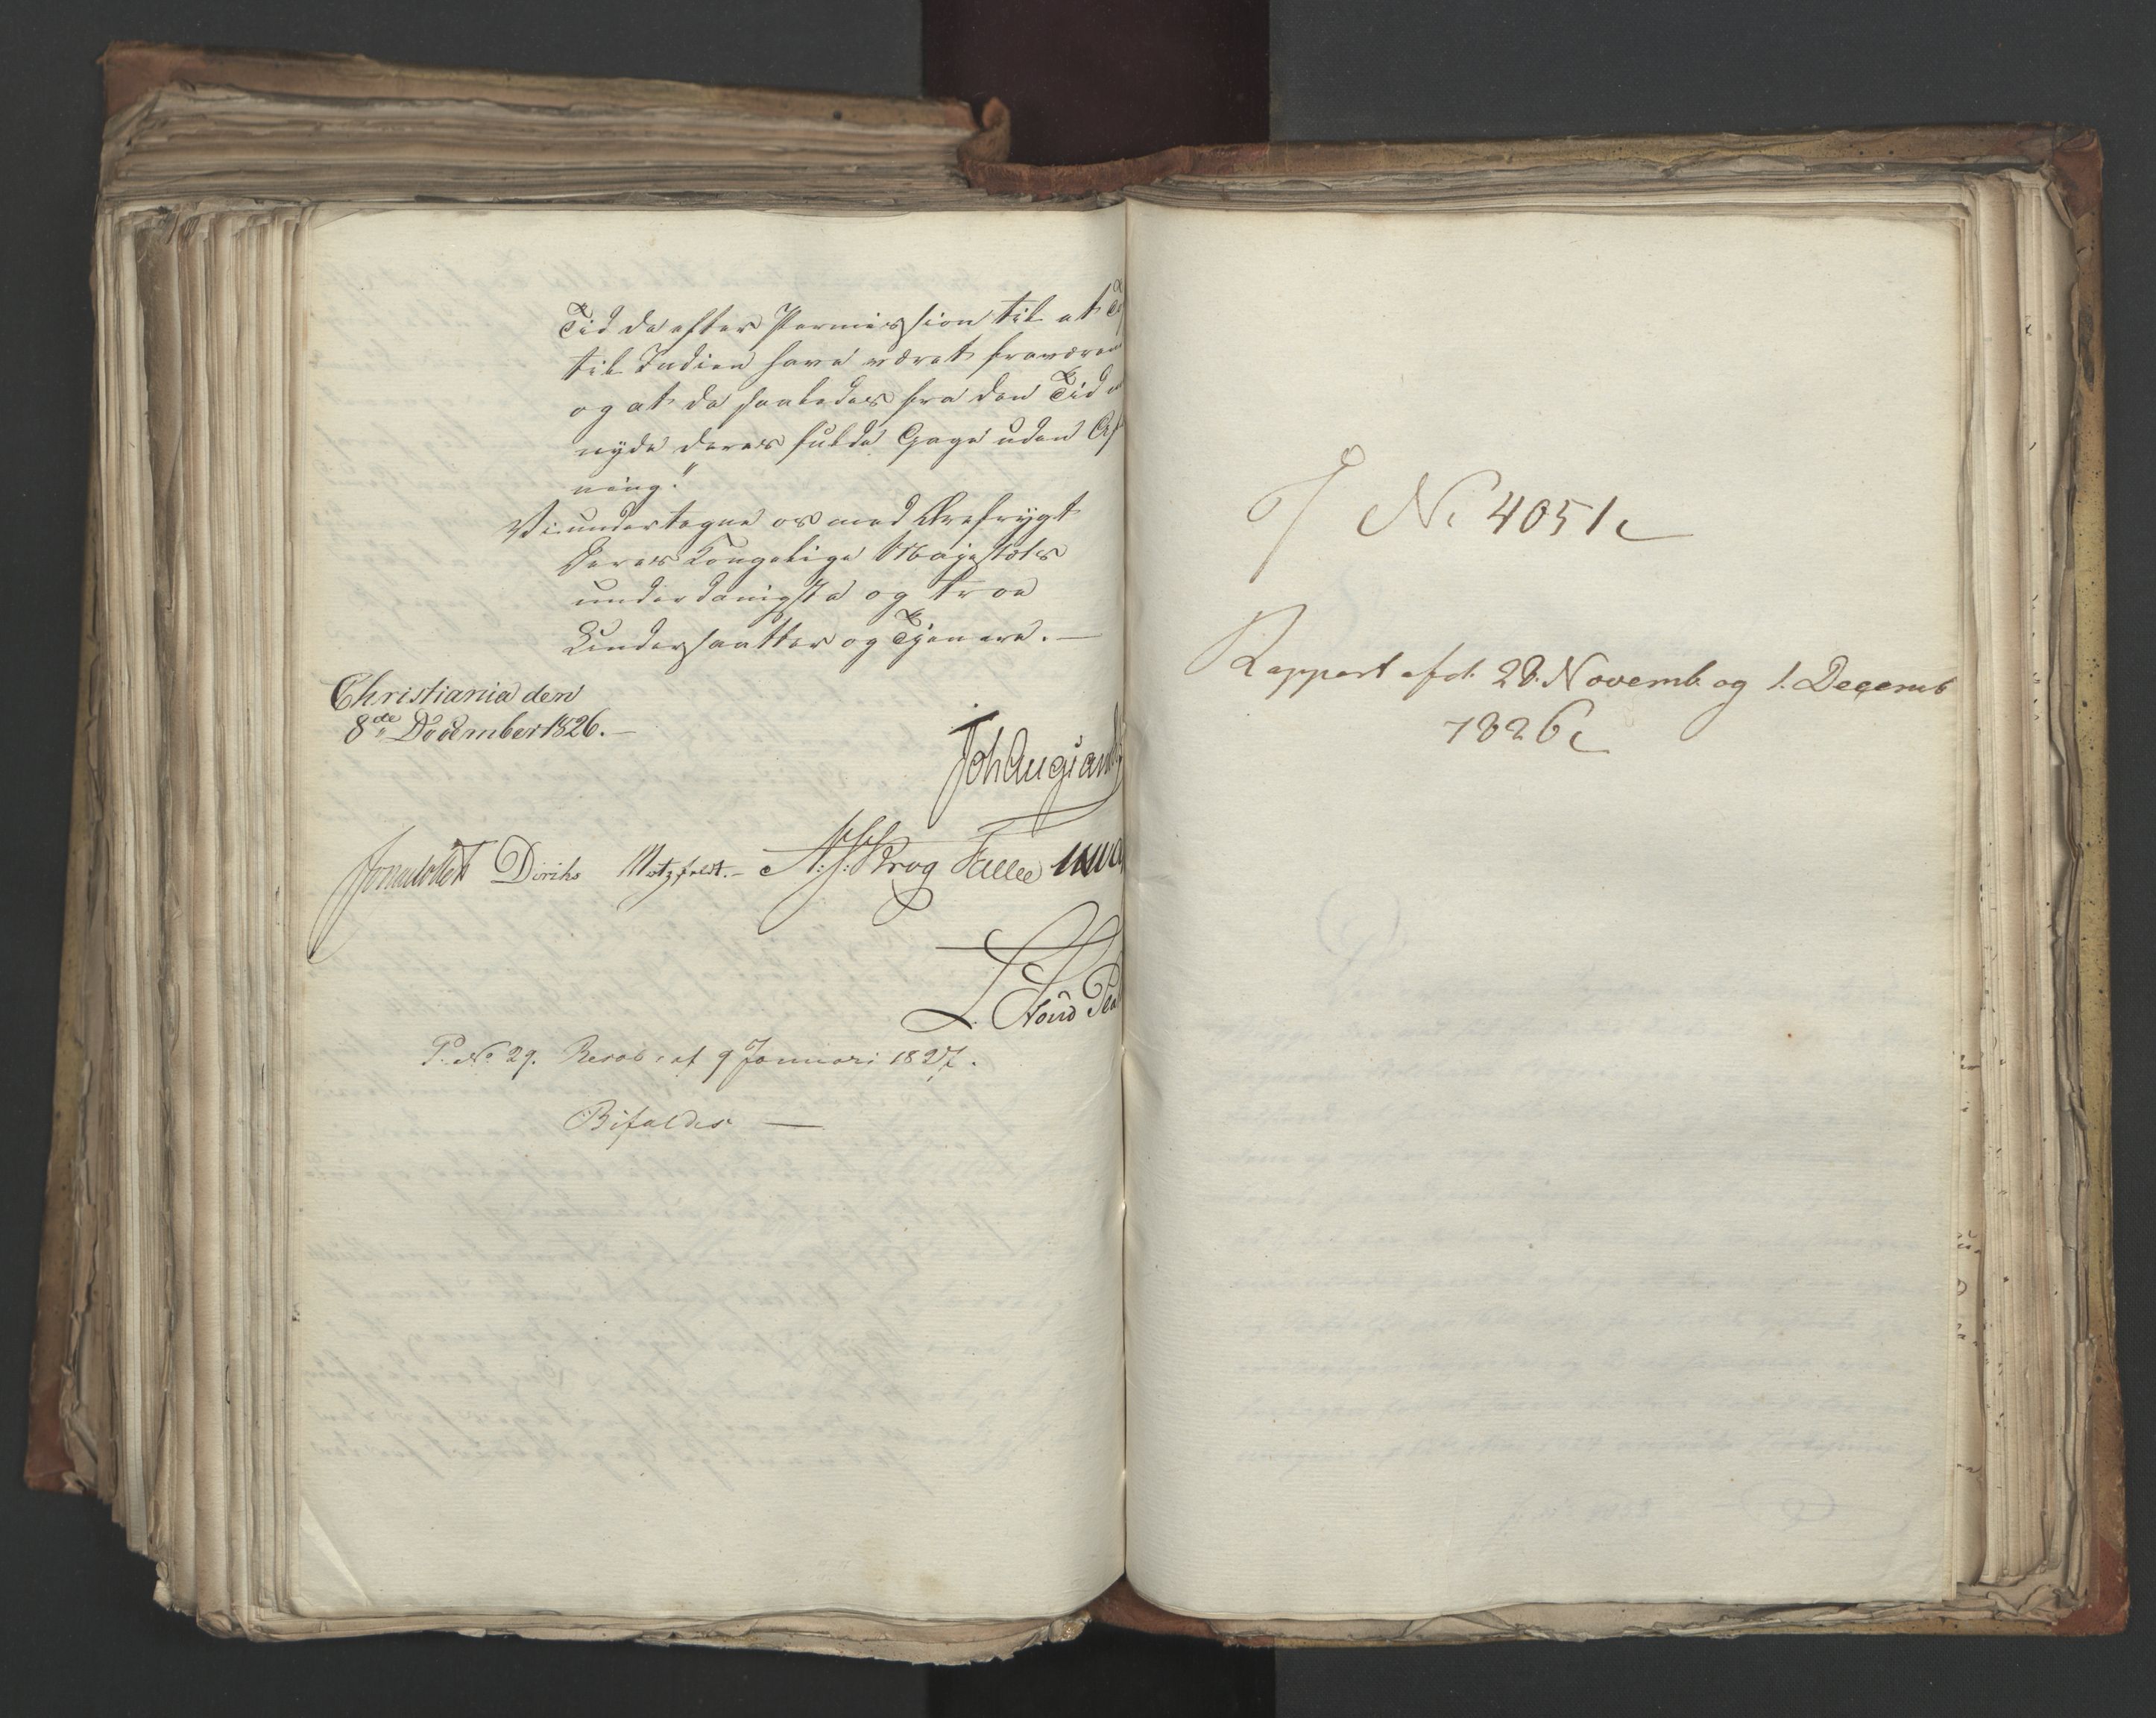 Tid de efter Permission til at
til Indien have været fraværen
og at de saaledes fra den Tid
nyde deres fulde Gage uden Af
ning."
Vi undertegne os med Ærefrygt
Deres Kongelige Majestæts
underdanigste og troe
Undersaatter og Tjenere. —
Christiania den
8de December 1826. —
Joh Aug Sand
Jonas Collett Diriks Motzfeldt. — A. J. Krog
P. No 29. Resol. af 9 Januari 1827.
Bifaldes —
J No 4051
Rappart af d. 28. Novemb. og 1. Decemb
1826